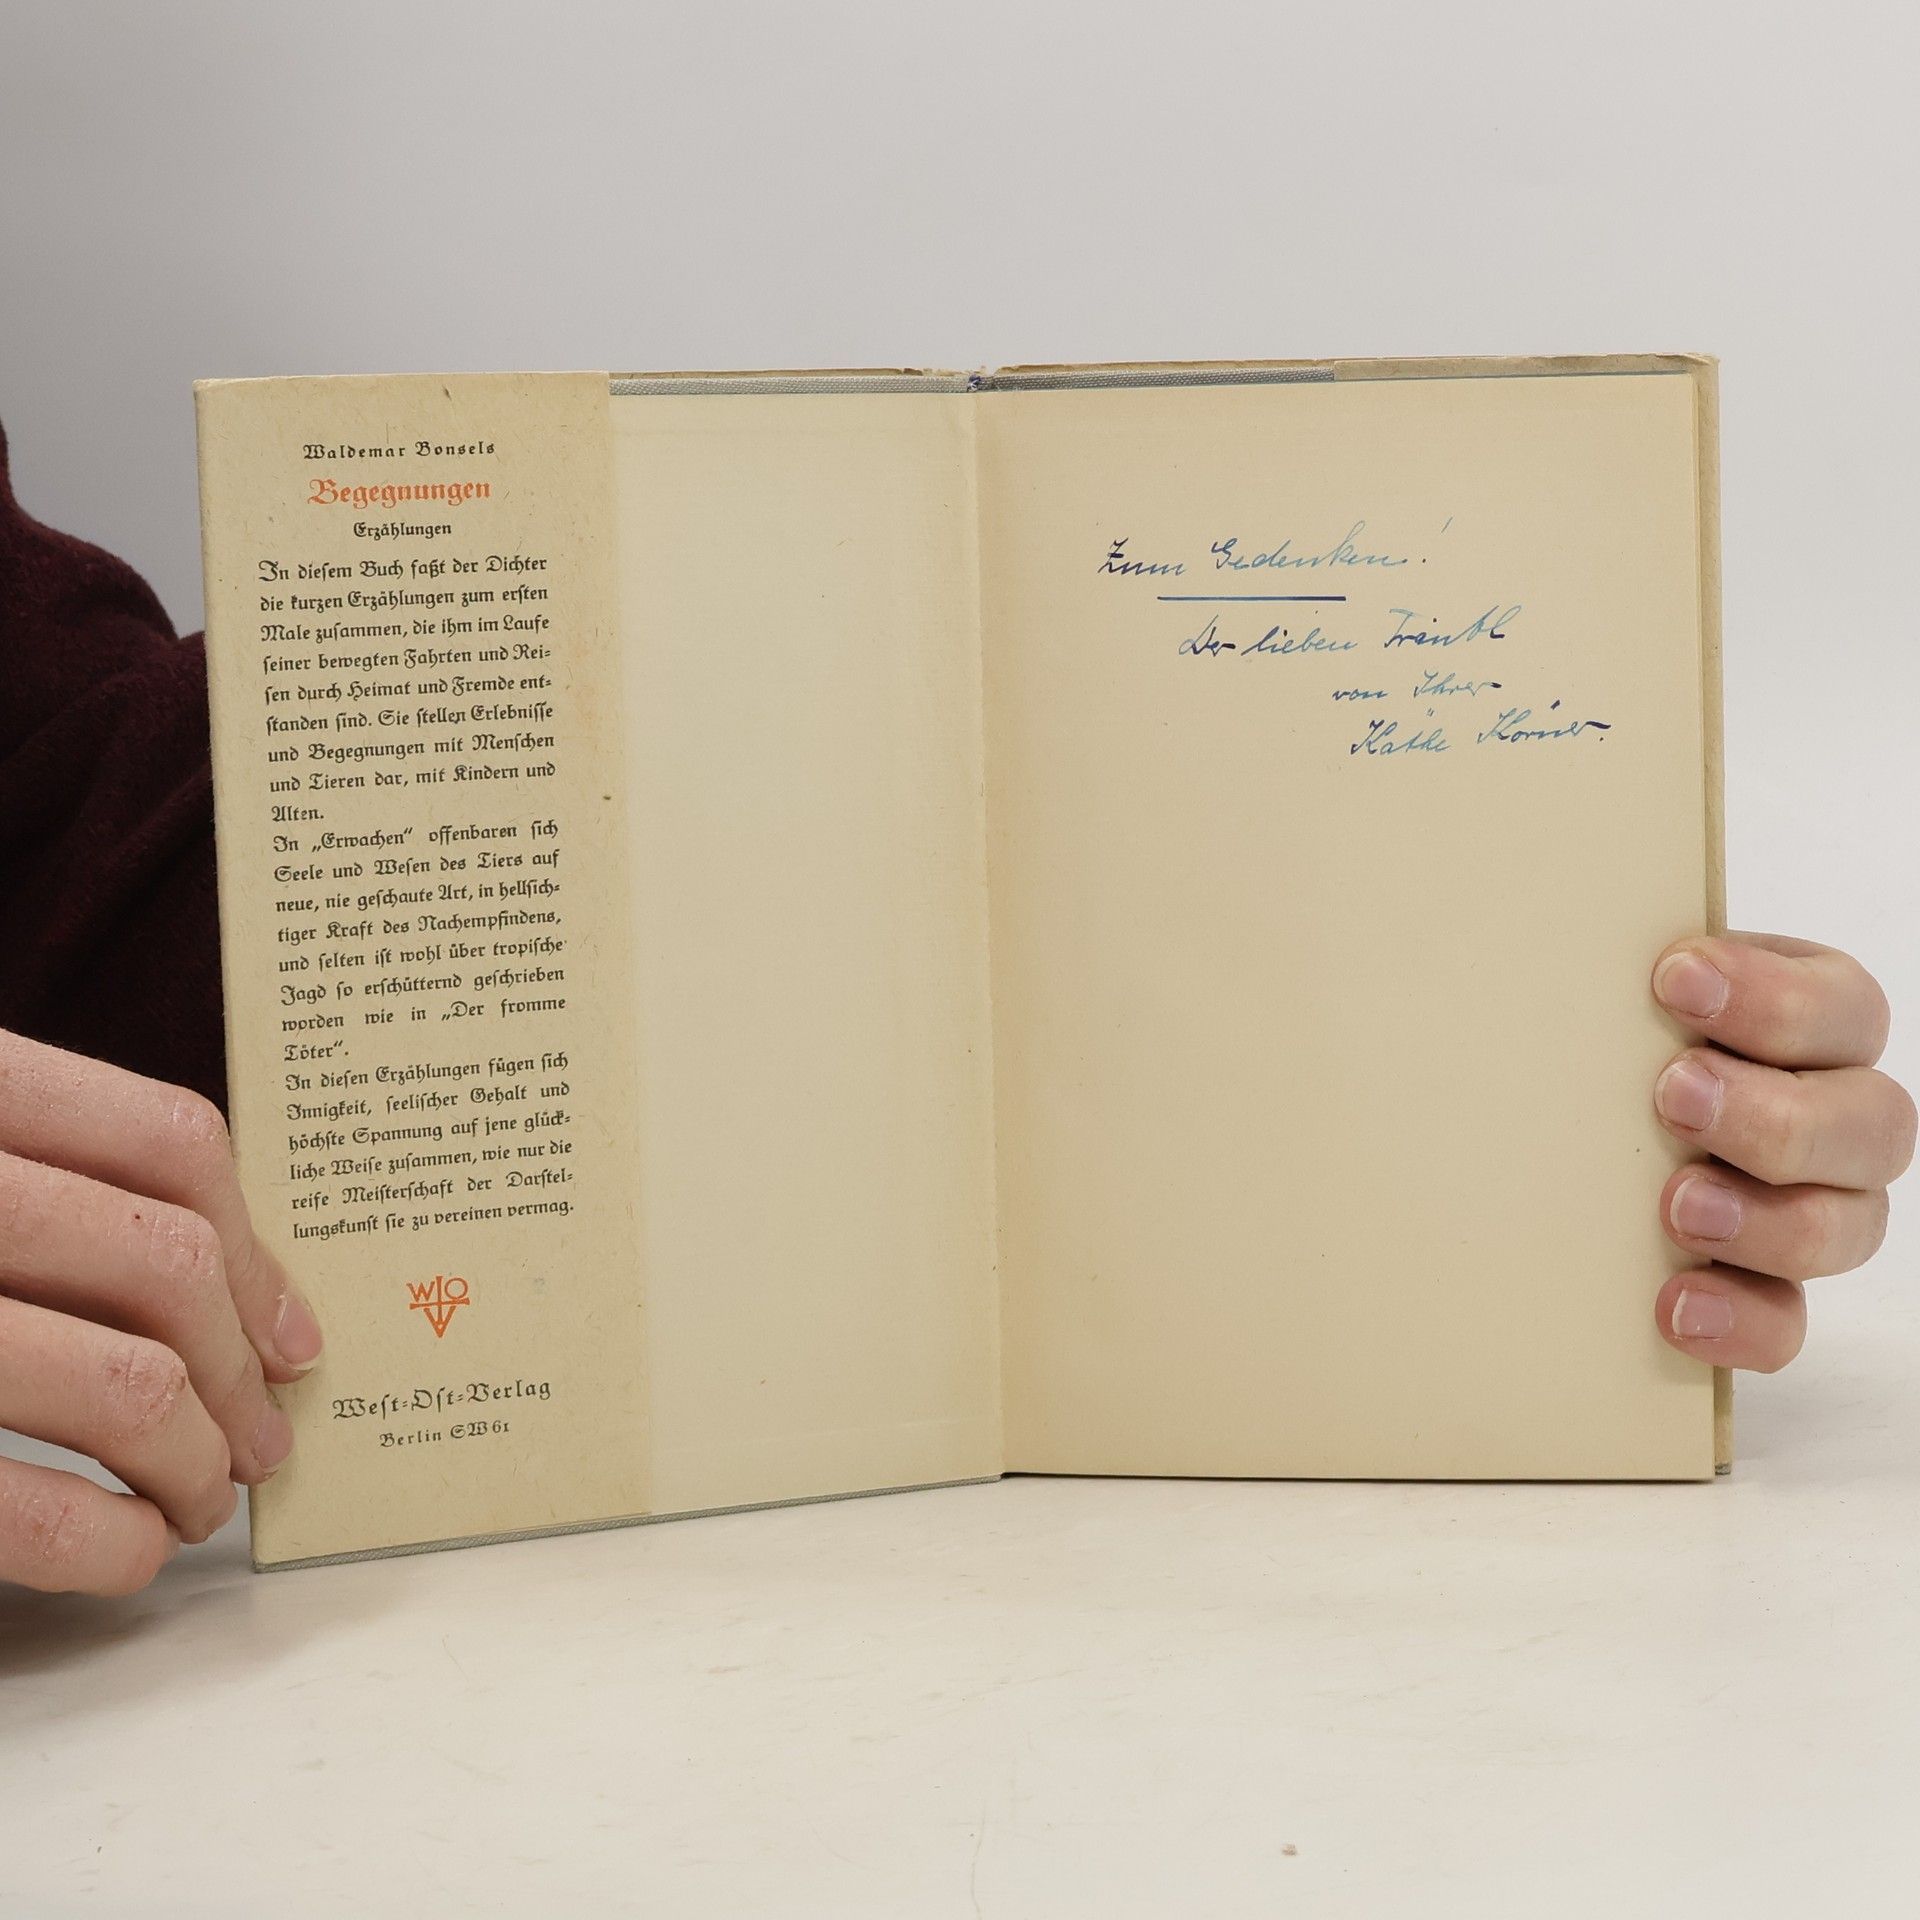 Waldemar Bonsels
Begegnungen
Erzählungen
In dieſem Buch faßt der Dichter
die kurzen Erzählungen zum erſten
Male zuſammen, die ihm im Laufe
ſeiner bewegten Fahrten und Rei⸗
ſen durch Heimat und Fremde ent⸗
ſtanden ſind. Sie ſtellen Erlebniſſe
und Begegnungen mit Menſchen
und Tieren dar, mit Kindern und
Alten.
In „Erwachen“ offenbaren ſich
Seele und Weſen des Tiers auf
neue, nie geſchaute Art, in hellſich⸗
tiger Kraft des Nachempfindens,
und ſelten iſt wohl über tropiſche
Jagd ſo erſchütternd geſchrieben
worden wie in „Der fromme
Töter“.
In dieſen Erzählungen fügen ſich
Innigkeit, ſeeliſcher Gehalt und
höchſte Spannung auf jene glück⸗
liche Weiſe zuſammen, wie nur die
reife Meiſterſchaft der Darſtel⸗
lungskunſt ſie zu vereinen vermag.
WOV
Weſt⸗Oſt⸗Verlag
Berlin SW 61
Zum Gedenken!
Der lieben
von Ihrer
Käthe Körner.